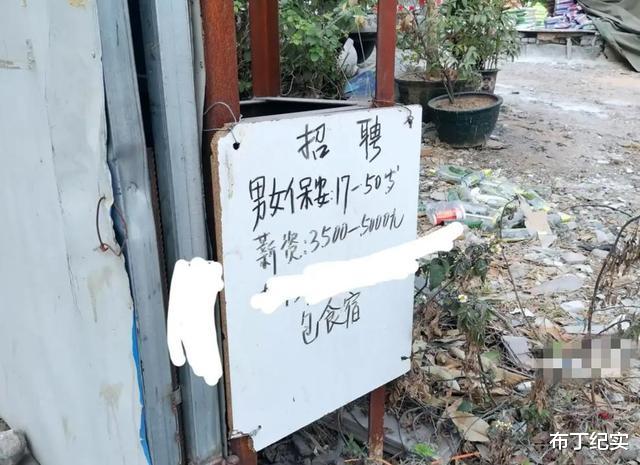 招聘
男女保安:17-50岁
薪资:3500-5000元
包食宿
布丁纪实